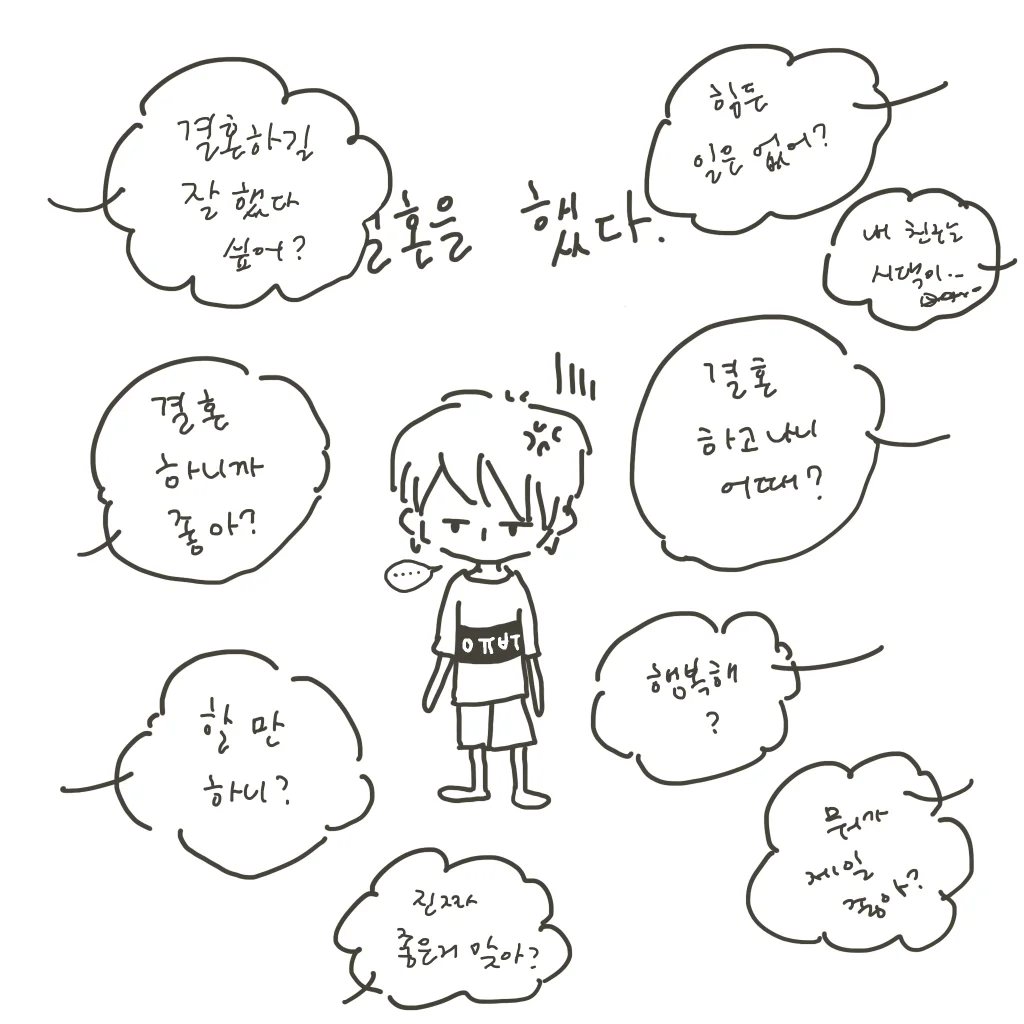 결혼하길
잘 했다
싶어?
결혼을 했다.
힘든
일은 없어?
내 친구는
시댁이...
결혼
하니까
좋아?
결혼
하고나니
어때?
.....
할 만
하니?
행복해
?
진짜
좋은거 맞아?
뭐가
제일
좋아?